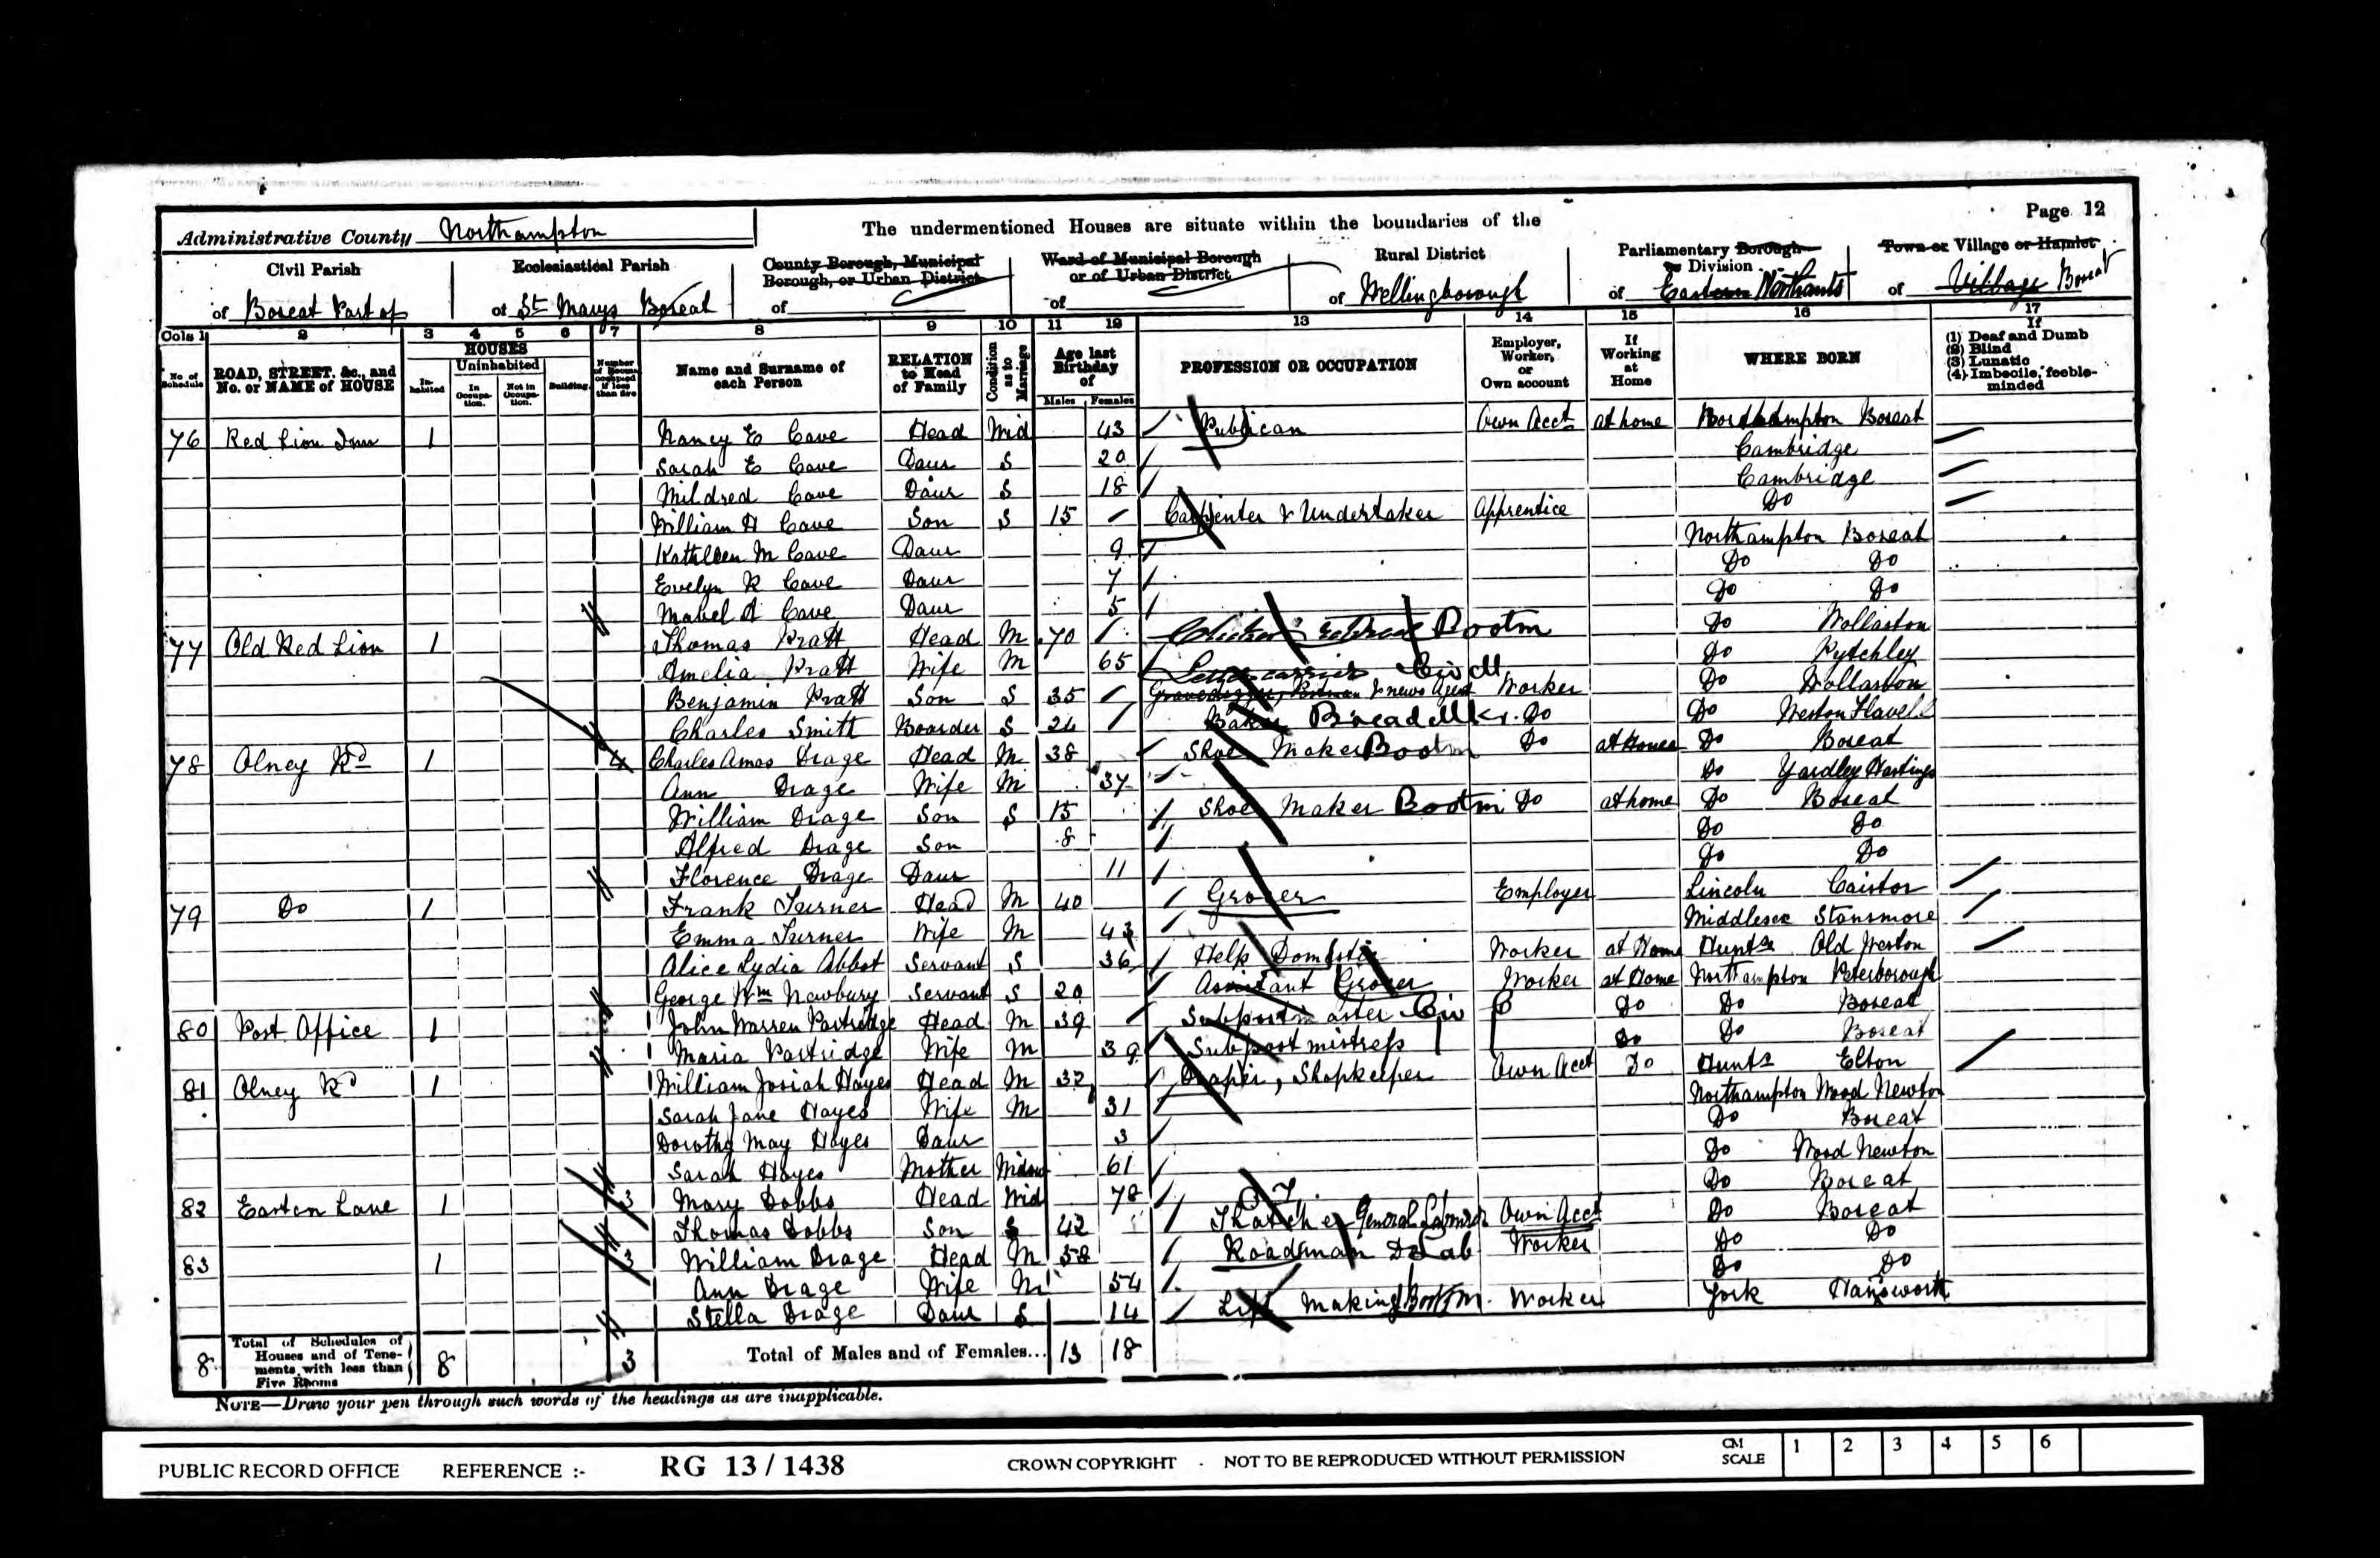 Page 12
Administrative County Northampton
The undermentioned Houses are situate within the boundaries of the
Civil Parish
of Bozeat Part of
Ecclesiastical Parish
of St Marys Bozeat
County Borough, Municipal Borough, or Urban District
of
Ward of Municipal Borough or of Urban District
of
Rural District
of Wellingborough
Parliamentary Borough or Division
of Eastern Northants
Town or Village or Hamlet
of Village Bozeat
Cols 1 2 3 4 5 6 7 8 9 10 11 12 13 14 15 16 17
No. of Schedule
ROAD, STREET, &c., and No. or NAME of HOUSE
HOUSES
Inhabited
Uninhabited
In Occupation.
Not in Occupation.
Building
Number of Rooms occupied if less than five
Name and Surname of each Person
RELATION to Head of Family
Condition as to Marriage
Age last Birthday of
Males Females
PROFESSION OR OCCUPATION
Employer, Worker, or Own account
If Working at Home
WHERE BORN
If
(1) Deaf and Dumb
(2) Blind
(3) Lunatic
(4) Imbecile, feeble-minded
76 Red Lion Inn 1 Nancy E Cave Head Wid 43 Publican Own Acct at home Northampton Bozeat
Sarah E Cave Daur S 20 Cambridge
Mildred Cave Daur S 18 Cambridge
William H Cave Son S 15 Carpenter & Undertaker Apprentice Do
Kathleen M Cave Daur 9 Northampton Bozeat
Evelyn R Cave Daur 7 Do Do
Mabel A Cave Daur 5 Do Do
77 Old Red Lion 1 Thomas Pratt Head M 70 Bootm Do Wollaston
Amelia Pratt Wife M 65 Do Pytchley
Benjamin Pratt Son S 35 Letter carrier Gravedigger, & news Agent Worker Do Wollaston
Charles Smith Boarder S 24 Baker Bread Mkr. Do Do Weston Flavell
78 Olney Rd 1 4 Charles Amos Drage Head M 38 Shoe Maker Bootm Do at Home Do Bozeat
Ann Drage Wife M 37 Do Yardley Hastings
William Drage Son S 15 Shoe Maker Bootm Do at home Do Bozeat
Alfred Drage Son 8 Do Do
Florence Drage Daur 11 Do Do
79 Do 1 Frank Turner Head M 40 Grocer Employer Lincoln Caistor
Emma Turner Wife M 43 Middlesex Stansmore
Alice Lydia Abbot Servant S 36 Help Domestic Worker at Home Hunts Old Weston
George Wm Newbury Servant S 20 Assistant Grocer Worker at Home Northampton Peterborough
80 Post Office 1 John Warren Partridge Head M 39 Subpostmaster Civ Do Do Bozeat
Maria Partridge Wife M 39 Subpostmistress Do Do Bozeat
81 Olney Rd 1 William Josiah Hayes Head M 32 Draper, Shopkeeper Own Acct Do Hunts Elton
Sarah Jane Hayes Wife M 31 Northampton Wood Newton
Dorothy May Hayes Daur 3 Do Bozeat
Sarah Hayes Mother Widow 61 Do Wood Newton
82 Easton Lane 1 3 Mary Dobbs Head Wid 78 Do Bozeat
Thomas Dobbs Son S 42 Thatcher General Labourer Own Acct Do Bozeat
83 1 3 William Drage Head M 58 Roadman Lab Worker Do Do
Ann Drage Wife M 54 Do Do
Stella Drage Daur S 14 Lift Making Bootm. Worker York Hansworth
8 Total of Schedules of Houses and of Tenements with less than Five Rooms 8 3 Total of Males and of Females... 13 18
NOTE—Draw your pen through such words of the headings as are inapplicable.
PUBLIC RECORD OFFICE REFERENCE :- RG 13 / 1438 CROWN COPYRIGHT - NOT TO BE REPRODUCED WITHOUT PERMISSION CM SCALE 1 2 3 4 5 6